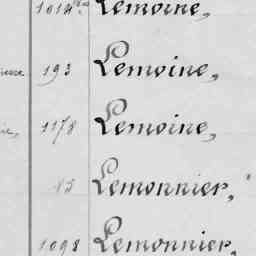 1014 Lemoine,
193 Lemoine,
1178 Lemoine,
15 Lemonnier,
1098 Lemonnier,